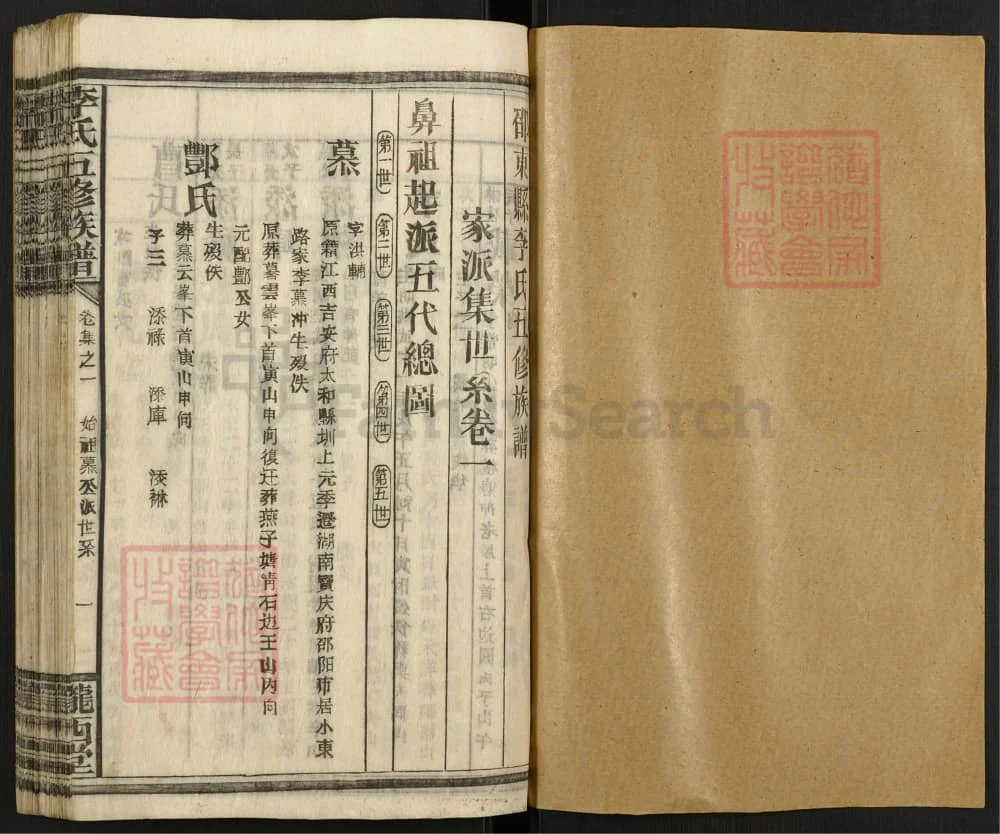 邵東縣李氏五修族譜
家派集世系卷一
鼻祖起派五代總圖
第一世 第二世 第三世 第四世 第五世
慕
字洪輔
原籍江西吉安府太和縣圳上元季遷湖南寶庆府邵阳市居小東
路家李慕冲生殁佚
原葬慕雲峯下首寅山申向復迁葬燕子塘青石边壬山丙向
酆氏
元配酆公女
生殁佚
葬慕云峯下首寅山申向
子三 添祿 添庫
李氏五修族譜
卷集之一
始祖慕公派世系
一
隴西堂
FamilySearch